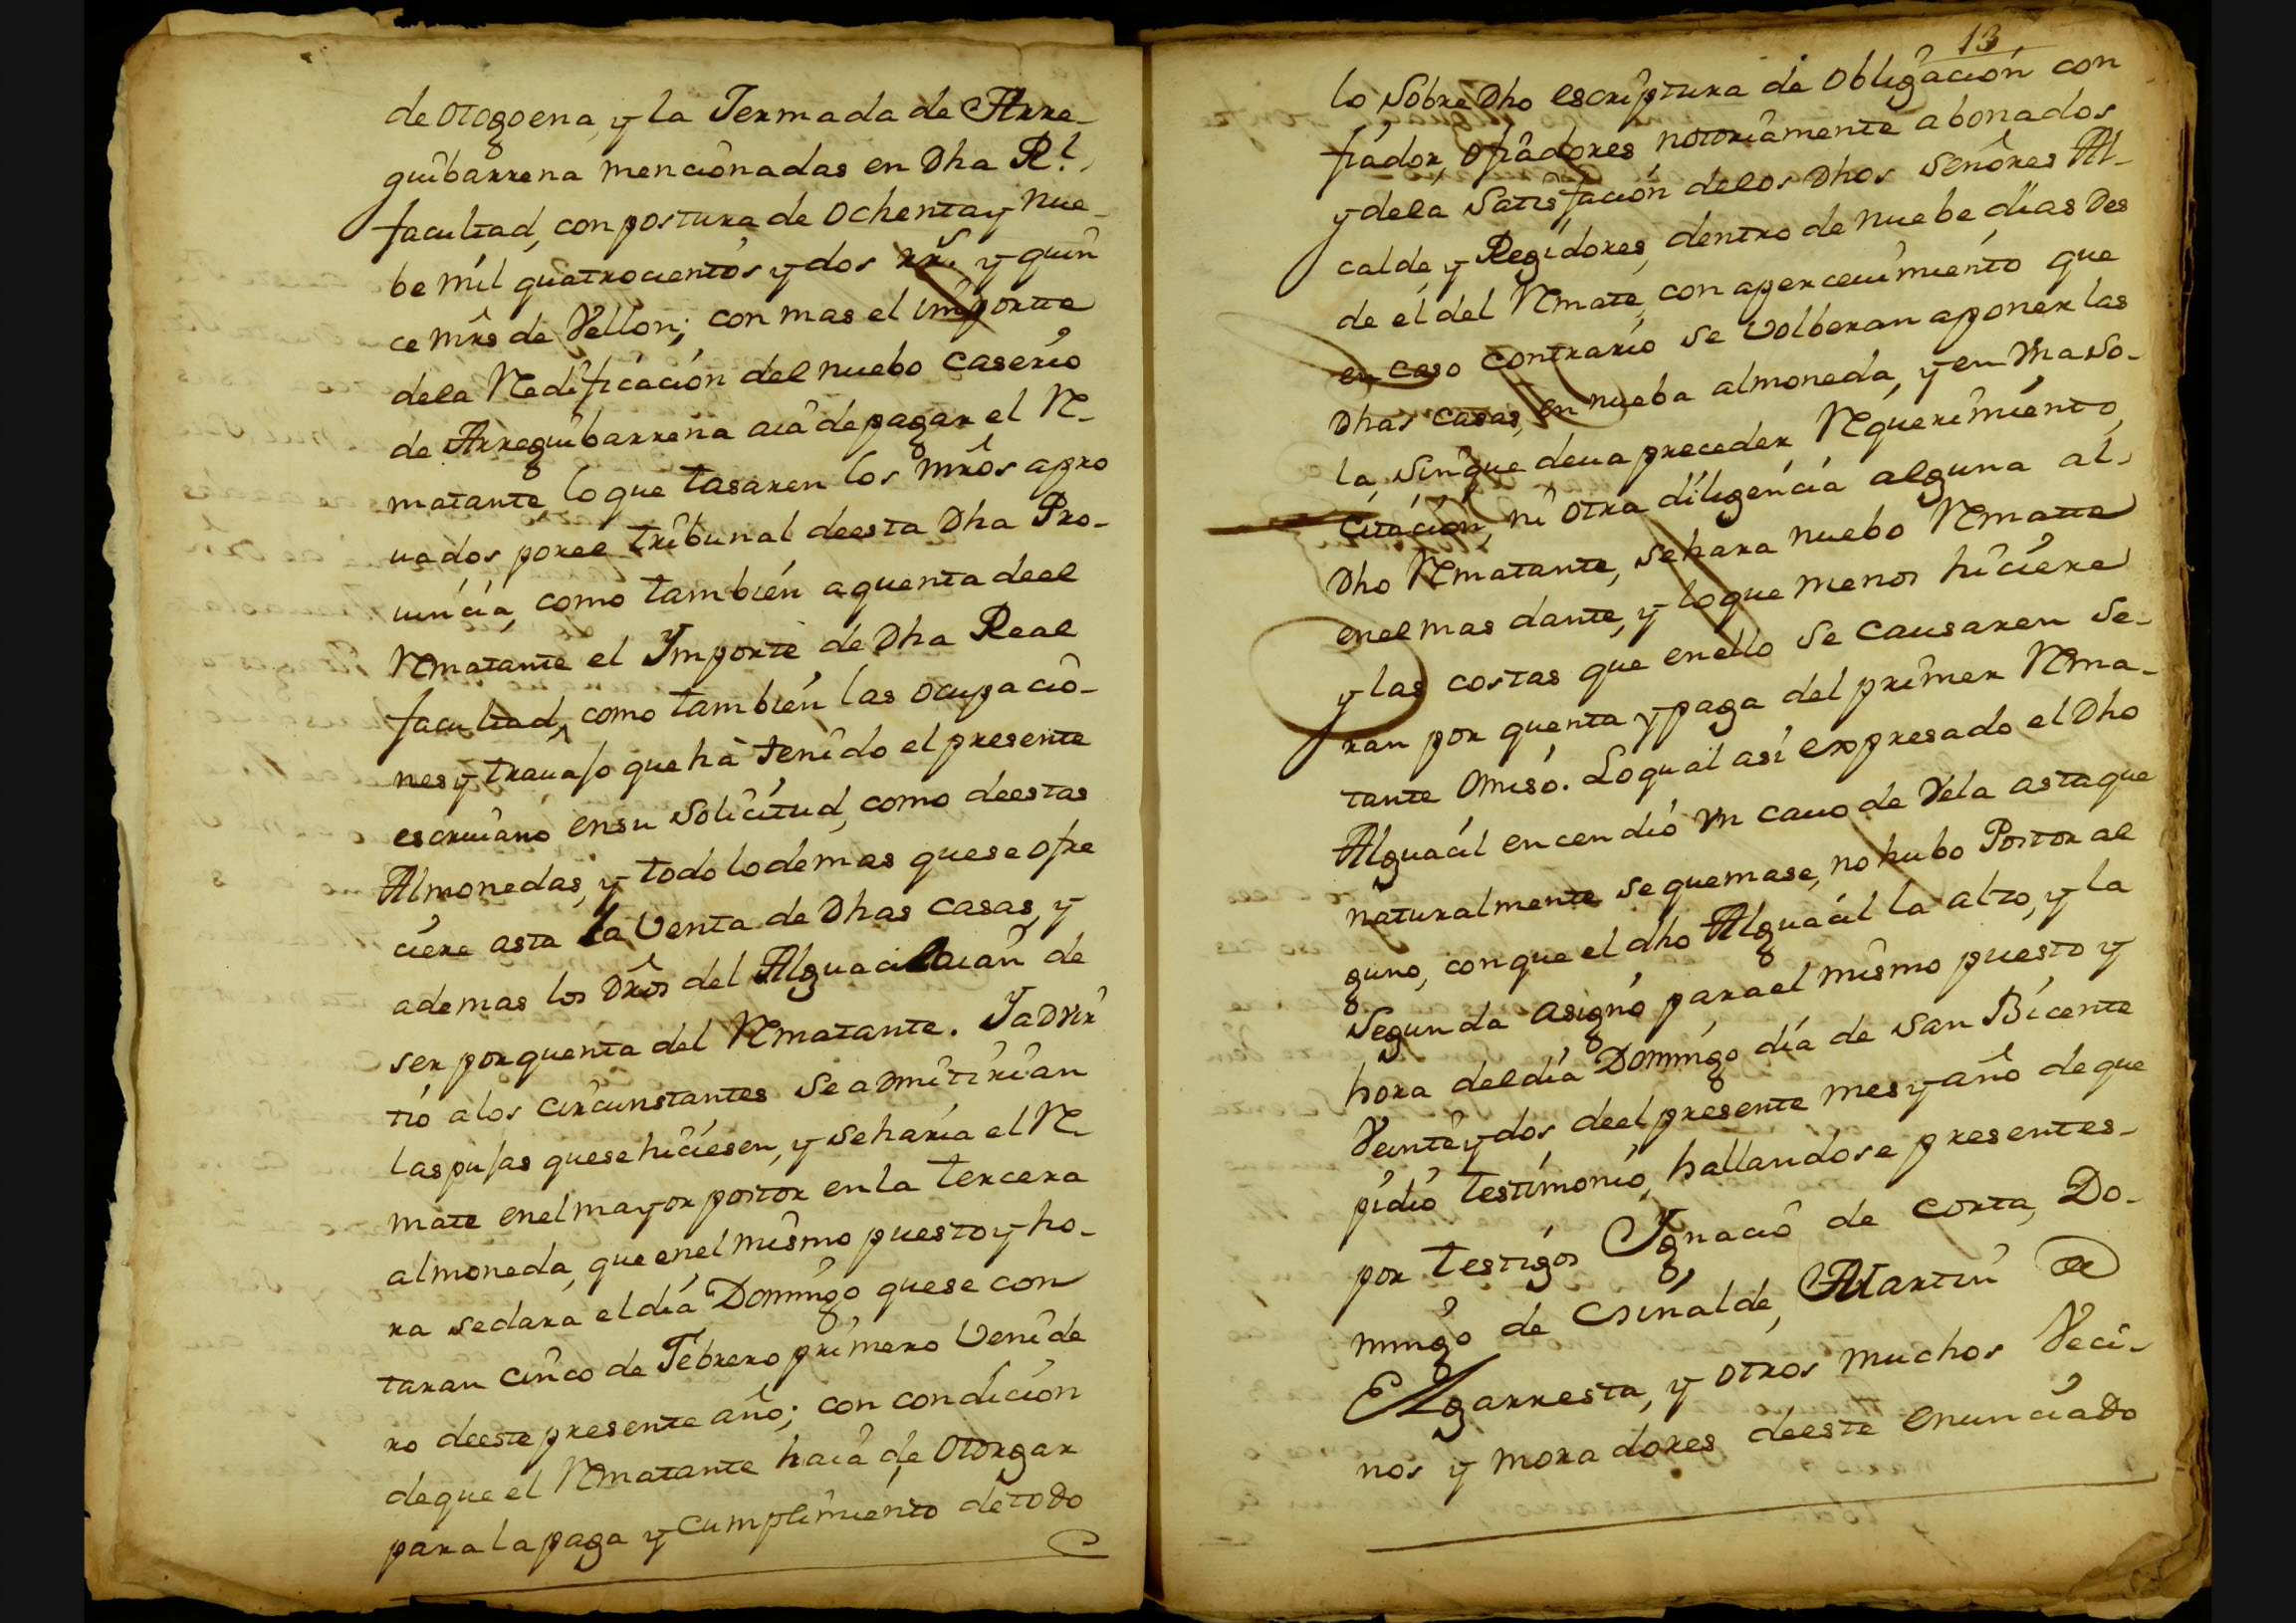 de otogoena, y la Jermada de Arre-
guibarrena mencionadas en Dha Rl.
facultad, con postura de ochenta y nue-
be mil quatrocientos y dos rrs. y quin
ce mrs de Vellon; con mas el importte
dela Redificación del nuebo caserio
de Arreguibarrena aia de pagar el R-
matante, lo que tasaren los mros apro
uados por el tribunal deesta Dha Pro-
uincia, como también a quenta deel
Rmatante el Ymporte de Dha Real
facultad, como también las ocupacio-
nes y trauajo que há tenido el presente
escriuano ensu solicitud, como deestas
Almonedas, y todo lo demas que se ofre
ciere asta la Venta de Dhas casas, y
ademas los Dros del Alguacil aian de
ser por quenta del Rmatante. Jadvir
tió alos circunstantes se admitirian
las pujas que se hiciesen, y se haría el R
mate enel mayor postor en la tercera
almoneda, que enel mismo puesto y ho-
ra se dará el día Domingo que se con
taran cinco de Febrero primero Venide
ro deeste presente año; con condicion
de que el Rmatante haia de otorgar
para la paga y cumplimiento de todo
13
lo sobre Dho escriptura de obligación con
fiador, o fiadores notoriamente abonados
y dela satisfación delos Dhos señores Al-
calde, y Regidores, dentro de nuebe dias Des
de el del Rmate, con aperceuimiento que
en caso contrario se volberan aponer las
Dhas casas, en nueba almoneda, y en vna so-
la, sin que deua preceder Rquerimiento,
citación, ni otra diligencia alguna al
Dho Rmatante, se hara nuebo Rmatte
enel mas dante, y lo que menos hiciere
y las costas que enello se causaren se-
ran por quenta y paga del primer Rma-
tante omiso. Lo qual así expresado el Dho
Alguacil encendió vn cauo de Vela asta que
naturalmente se quemase, no hubo Postor al
guno, con que el dho Alguacil la alzo, y la
segunda asignó para el mismo puesto y
hora del día Domingo día de San Bicente
Veinte y dos, deel presente mes y año de que
pidió testimonio, hallandose presentes-
por testigos Ygnacio de Corta, Do-
mingo de Csinalde, Martin de
Elgarresta, y otros muchos Veci-
nos y moradores deeste enunciado